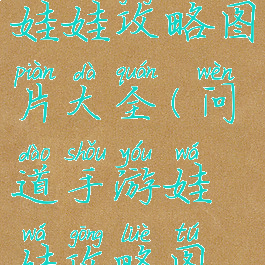 娃娃攻略图
piàn dà quán wèn
片大全(问
dào shǒu yóu wá
道手游娃
wá gōng lüè tú
娃攻略图